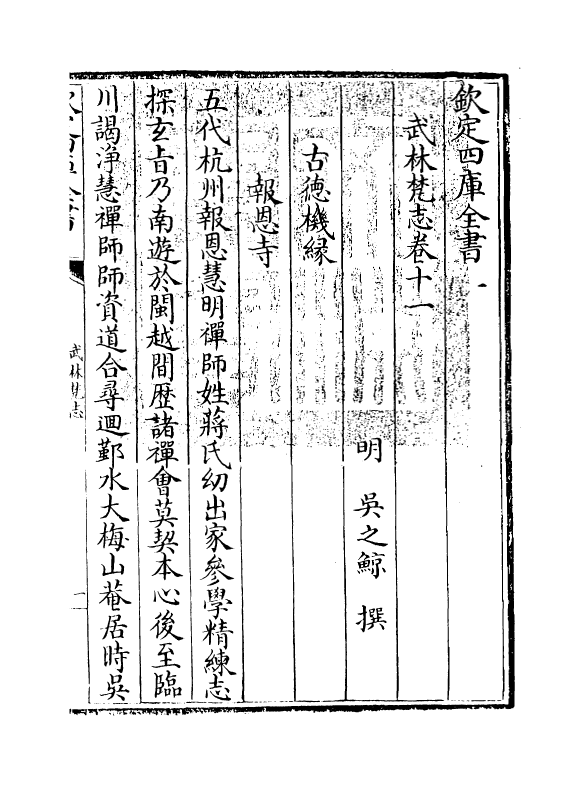 欽定四庫全書
武林梵志卷十一
明 吳之鯨 撰
古德機縁
報恩寺
五代杭州報恩慧明禪師姓蔣氏幼出家參學精練志
探玄㫖乃南遊於閩越間歴諸禪會莫契本心後至臨
川謁浄慧禪師師資道合尋迴鄞水大梅山菴居時吳
武林梵志